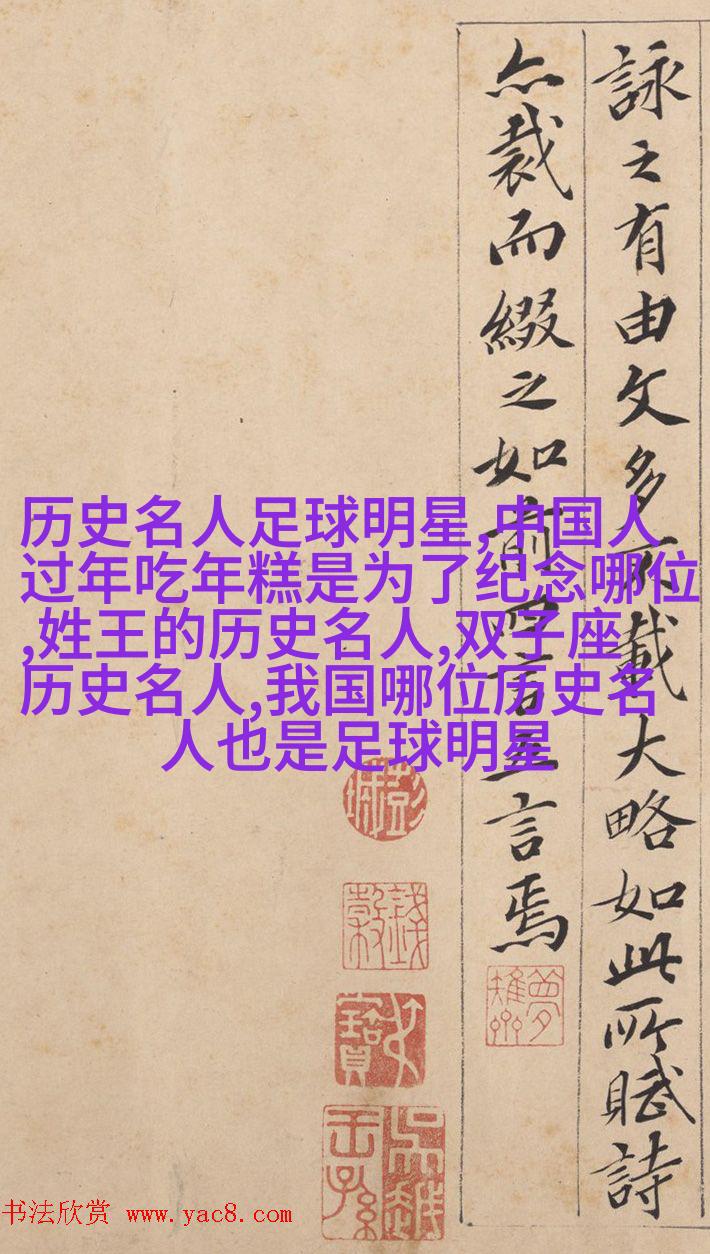 詠之有由文多不載大略如此所賦詩
亦裁而綴之如前四言五言焉
历史名人足球明星,中国人
过年吃年糕是为了纪念哪位
,姓王的历史名人,双子座
历史名人,我国哪位历史名
人也是足球明星
书法欣赏 www.yac8.com